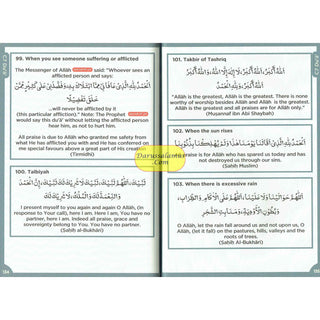 99. When you see someone suffering or afflicted
The Messenger of Allāh said: "Whoever sees an
afflicted person and says:
الْحَمْدُ لِلَّهِ الَّذِي عَافَانِي مِمَّا ابْتَلَاكَ بِهِ وَفَضَّلَنِي عَلَى كَثِيرٍ مِمَّنْ
خَلَقَ تَفْضِيلًا
...will never be afflicted by it
(this particular affliction)." Note: The Prophet
would say this du'ā' without letting the afflicted person
hear him, as not to hurt him.
All praise is due to Allāh who has granted me safety from
what He has afflicted you with and has conferred on
me special favours above a great part of His creation.
(Tirmidhi)
100. Talbiyah
لَبَّيْكَ اللَّهُمَّ لَبَّيْكَ، لَبَّيْكَ لَا شَرِيكَ لَكَ لَبَّيْكَ، إِنَّ الْحَمْدَ
وَالنِّعْمَةَ لَكَ وَالْمُلْكَ، لَا شَرِيكَ لَكَ
I present myself to you again and again O Allāh, (in
response to Your call), here I am. Here I am, You have no
partner, here I am. Indeed all praise, grace and
sovereignty belong to You. You have no partner.
(Sahih al-Bukhāri)
134
101. Takbir of Tashriq
اللهُ أَكْبَرُ، اللهُ أَكْبَرُ، لَا إِلَهَ إِلَّا اللهُ وَاللهُ أَكْبَرُ
اللهُ أَكْبَرُ وَلِلَّهِ الْحَمْدُ
"Allāh is the greatest, Allāh is the greatest. There is none
worthy of worship besides Allāh and Allāh is the greatest.
Allāh is the greatest and all praises are for Allāh."
(Musannaf Ibn Abi Shaybah)
102. When the sun rises
الْحَمْدُ لِلَّهِ الَّذِي أَقَالَنَا يَوْمَنَا هَذَا وَلَمْ يُهْلِكْنَا بِذُنُوبِنَا
All praise is for Allāh who has spared us today and has
not destroyed us through our sins.
(Sahih Muslim)
103. When there is excessive rain
اللَّهُمَّ حَوَالَيْنَا وَلَا عَلَيْنَا، اللَّهُمَّ عَلَى الْآكَامِ وَالظِّرَابِ،
وَبُطُونِ الْأَوْدِيَةِ، وَمَنَابِتِ الشَّجَرِ
O Allāh, let the rain fall around us and not upon us, O
Allāh, (let it fall) on the pastures, hills, valleys and the
roots of trees.
(Sahih Al-Bukhāri)
135
Darussalam
.Com